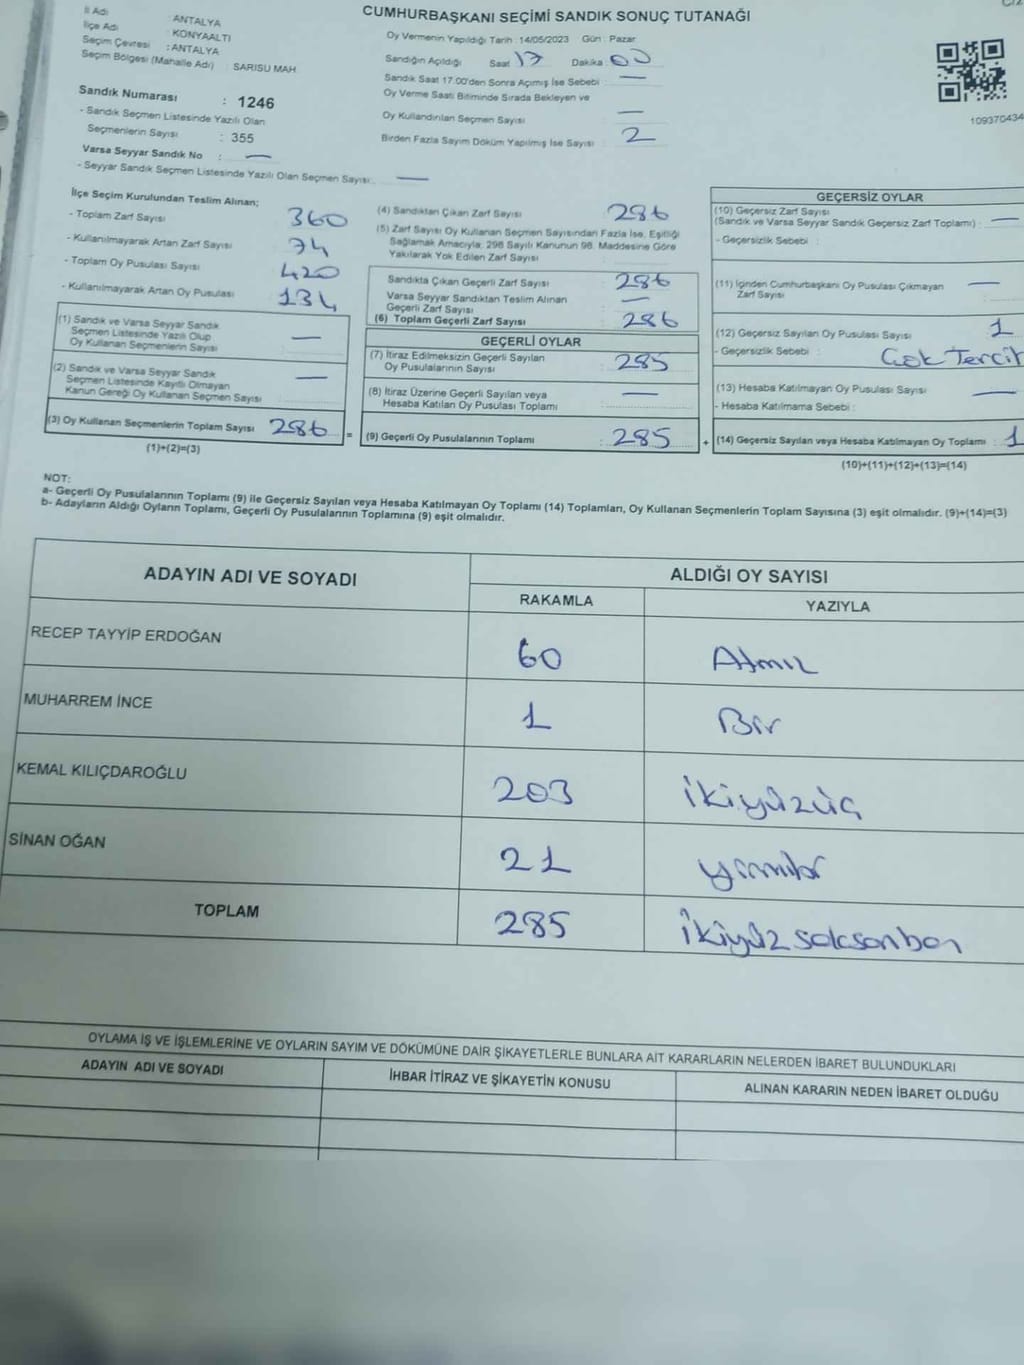 CUMHURBAŞKANI SEÇİMİ SANDIK SONUÇ TUTANAĞI
İl Adı : ANTALYA
İlçe Adı : KONYAALTI
Seçim Çevresi : ANTALYA
Seçim Bölgesi (Mahalle Adı) : SARISU MAH.
Sandık Numarası : 1246
- Sandık Seçmen Listesinde Yazılı Olan
Seçmenlerin Sayısı : 355
Varsa Seyyar Sandık No : —
- Seyyar Sandık Seçmen Listesinde Yazılı Olan Seçmen Sayısı: —
Oy Vermenin Yapıldığı Tarih : 14/05/2023 Gün : Pazar
Sandığın Açıldığı Saat : 17 Dakika : 00
Sandık Saat 17:00'den Sonra Açımış İse Sebebi : —
Oy Verme Saati Bitiminde Sırada Bekleyen ve
Oy Kullandırılan Seçmen Sayısı : —
Birden Fazla Sayım Döküm Yapılmış İse Sayısı : 2
109370434
İlçe Seçim Kurulundan Teslim Alınan;
- Toplam Zarf Sayısı : 360
- Kullanılmayarak Artan Zarf Sayısı : 74
- Toplam Oy Pusulası Sayısı : 420
- Kullanılmayarak Artan Oy Pusulası : 134
(1) Sandık ve Varsa Seyyar Sandık
Seçmen Listesinde Yazılı Olup
Oy Kullanan Seçmenlerin Sayısı : —
(2) Sandık ve Varsa Seyyar Sandık
Seçmen Listesinde Kayıtlı Olmayan
Kanun Gereği Oy Kullanan Seçmen Sayısı : —
(3) Oy Kullanan Seçmenlerin Toplam Sayısı : 286 =
(1)+(2)=(3)
(4) Sandıktan Çıkan Zarf Sayısı : 286
(5) Zarf Sayısı Oy Kullanan Seçmen Sayısından Fazla İse, Eşitliği
Sağlamak Amacıyla; 298 Sayılı Kanunun 98. Maddesine Göre
Yakılarak Yok Edilen Zarf Sayısı :
Sandıkta Çıkan Geçerli Zarf Sayısı : 286
Varsa Seyyar Sandıktan Teslim Alınan
Geçerli Zarf Sayısı : —
(6) Toplam Geçerli Zarf Sayısı : 286
GEÇERLİ OYLAR
(7) İtiraz Edilmeksizin Geçerli Sayılan
Oy Pusulalarının Sayısı : 285
(8) İtiraz Üzerine Geçerli Sayılan veya
Hesaba Katılan Oy Pusulası Toplamı : —
(9) Geçerli Oy Pusulalarının Toplamı : 285 +
GEÇERSİZ OYLAR
(10) Geçersiz Zarf Sayısı
(Sandık ve Varsa Seyyar Sandık Geçersiz Zarf Toplamı) : —
- Geçersizlik Sebebi :
(11) İçinden Cumhurbaşkanı Oy Pusulası Çıkmayan
Zarf Sayısı : —
(12) Geçersiz Sayılan Oy Pusulası Sayısı : 1
- Geçersizlik Sebebi : Çok Tercih
(13) Hesaba Katılmayan Oy Pusulası Sayısı : —
- Hesaba Katılmama Sebebi :
(14) Geçersiz Sayılan veya Hesaba Katılmayan Oy Toplamı : 1
(10)+(11)+(12)+(13)=(14)
NOT:
a- Geçerli Oy Pusulalarının Toplamı (9) ile Geçersiz Sayılan veya Hesaba Katılmayan Oy Toplamı (14) Toplamları, Oy Kullanan Seçmenlerin Toplam Sayısına (3) eşit olmalıdır. (9)+(14)=(3)
b- Adayların Aldığı Oyların Toplamı, Geçerli Oy Pusulalarının Toplamına (9) eşit olmalıdır.
ADAYIN ADI VE SOYADI ALDIĞI OY SAYISI
RAKAMLA YAZIYLA
RECEP TAYYİP ERDOĞAN 60 Atmış
MUHARREM İNCE 1 Bir
KEMAL KILIÇDAROĞLU 203 İkiyüzüç
SİNAN OĞAN 21 yirmibir
TOPLAM 285 İkiyüz seksenbeş
OYLAMA İŞ VE İŞLEMLERİNE VE OYLARIN SAYIM VE DÖKÜMÜNE DAİR ŞİKAYETLERLE BUNLARA AİT KARARLARIN NELERDEN İBARET BULUNDUKLARI
ADAYIN ADI VE SOYADI İHBAR İTİRAZ VE ŞİKAYETİN KONUSU ALINAN KARARIN NEDEN İBARET OLDUĞU